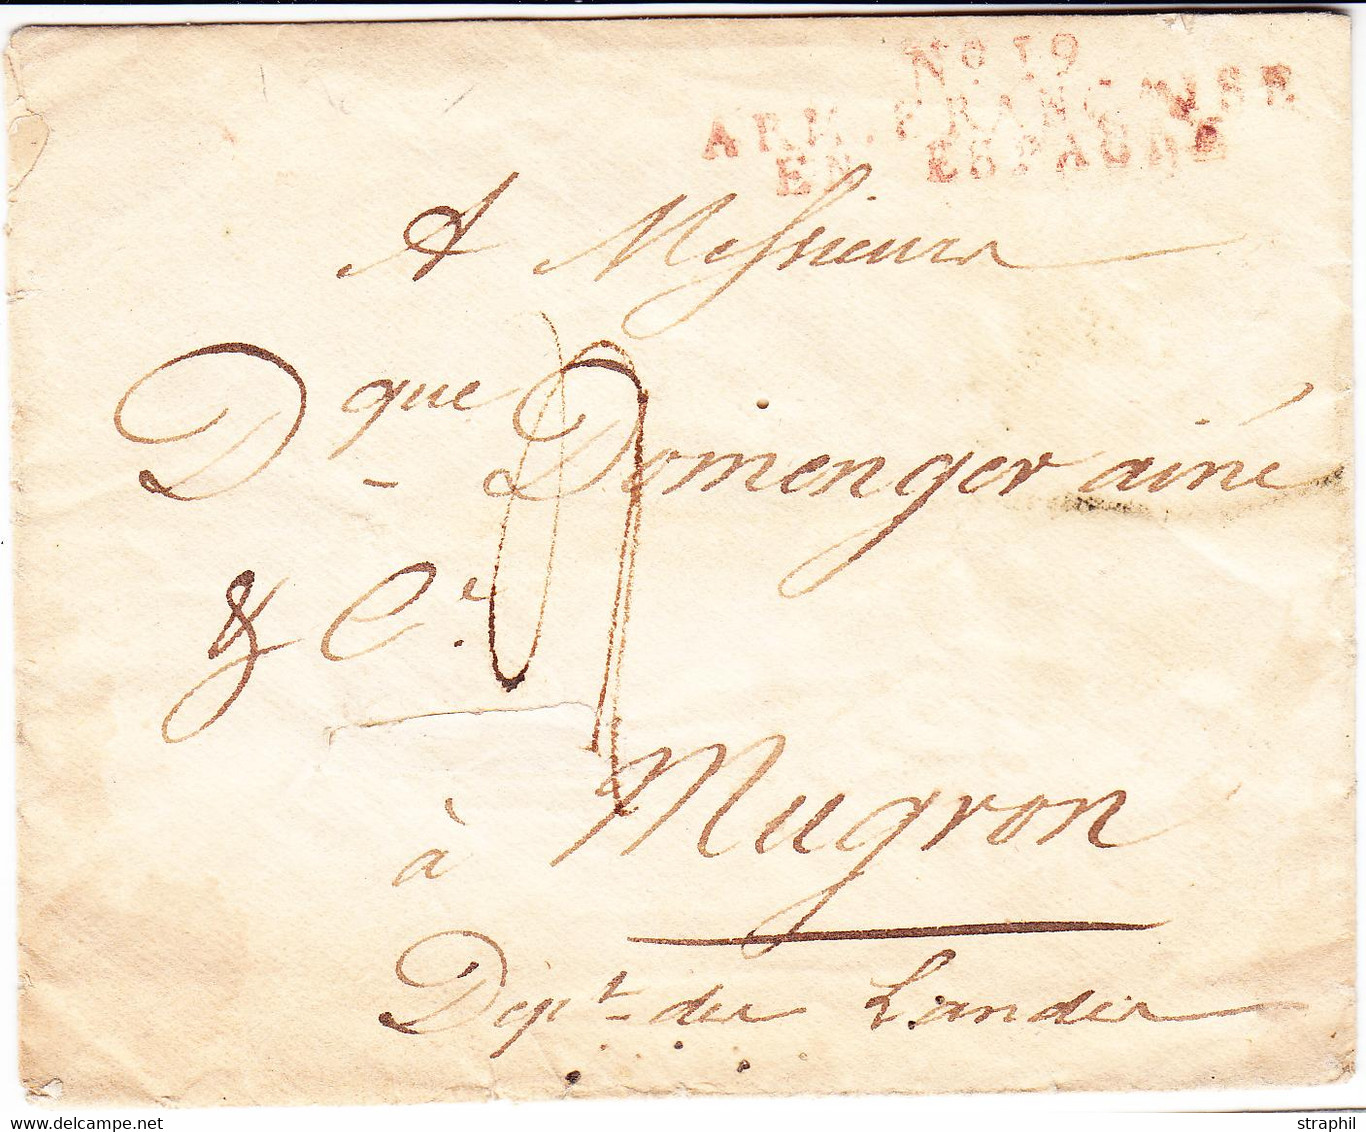 No 19
ARM. FRANCAISE
EN ESPAGNE
A Messieurs
Dque Domenger ainé
& Cie.
à Mugron
Dept. des Landes
straphil